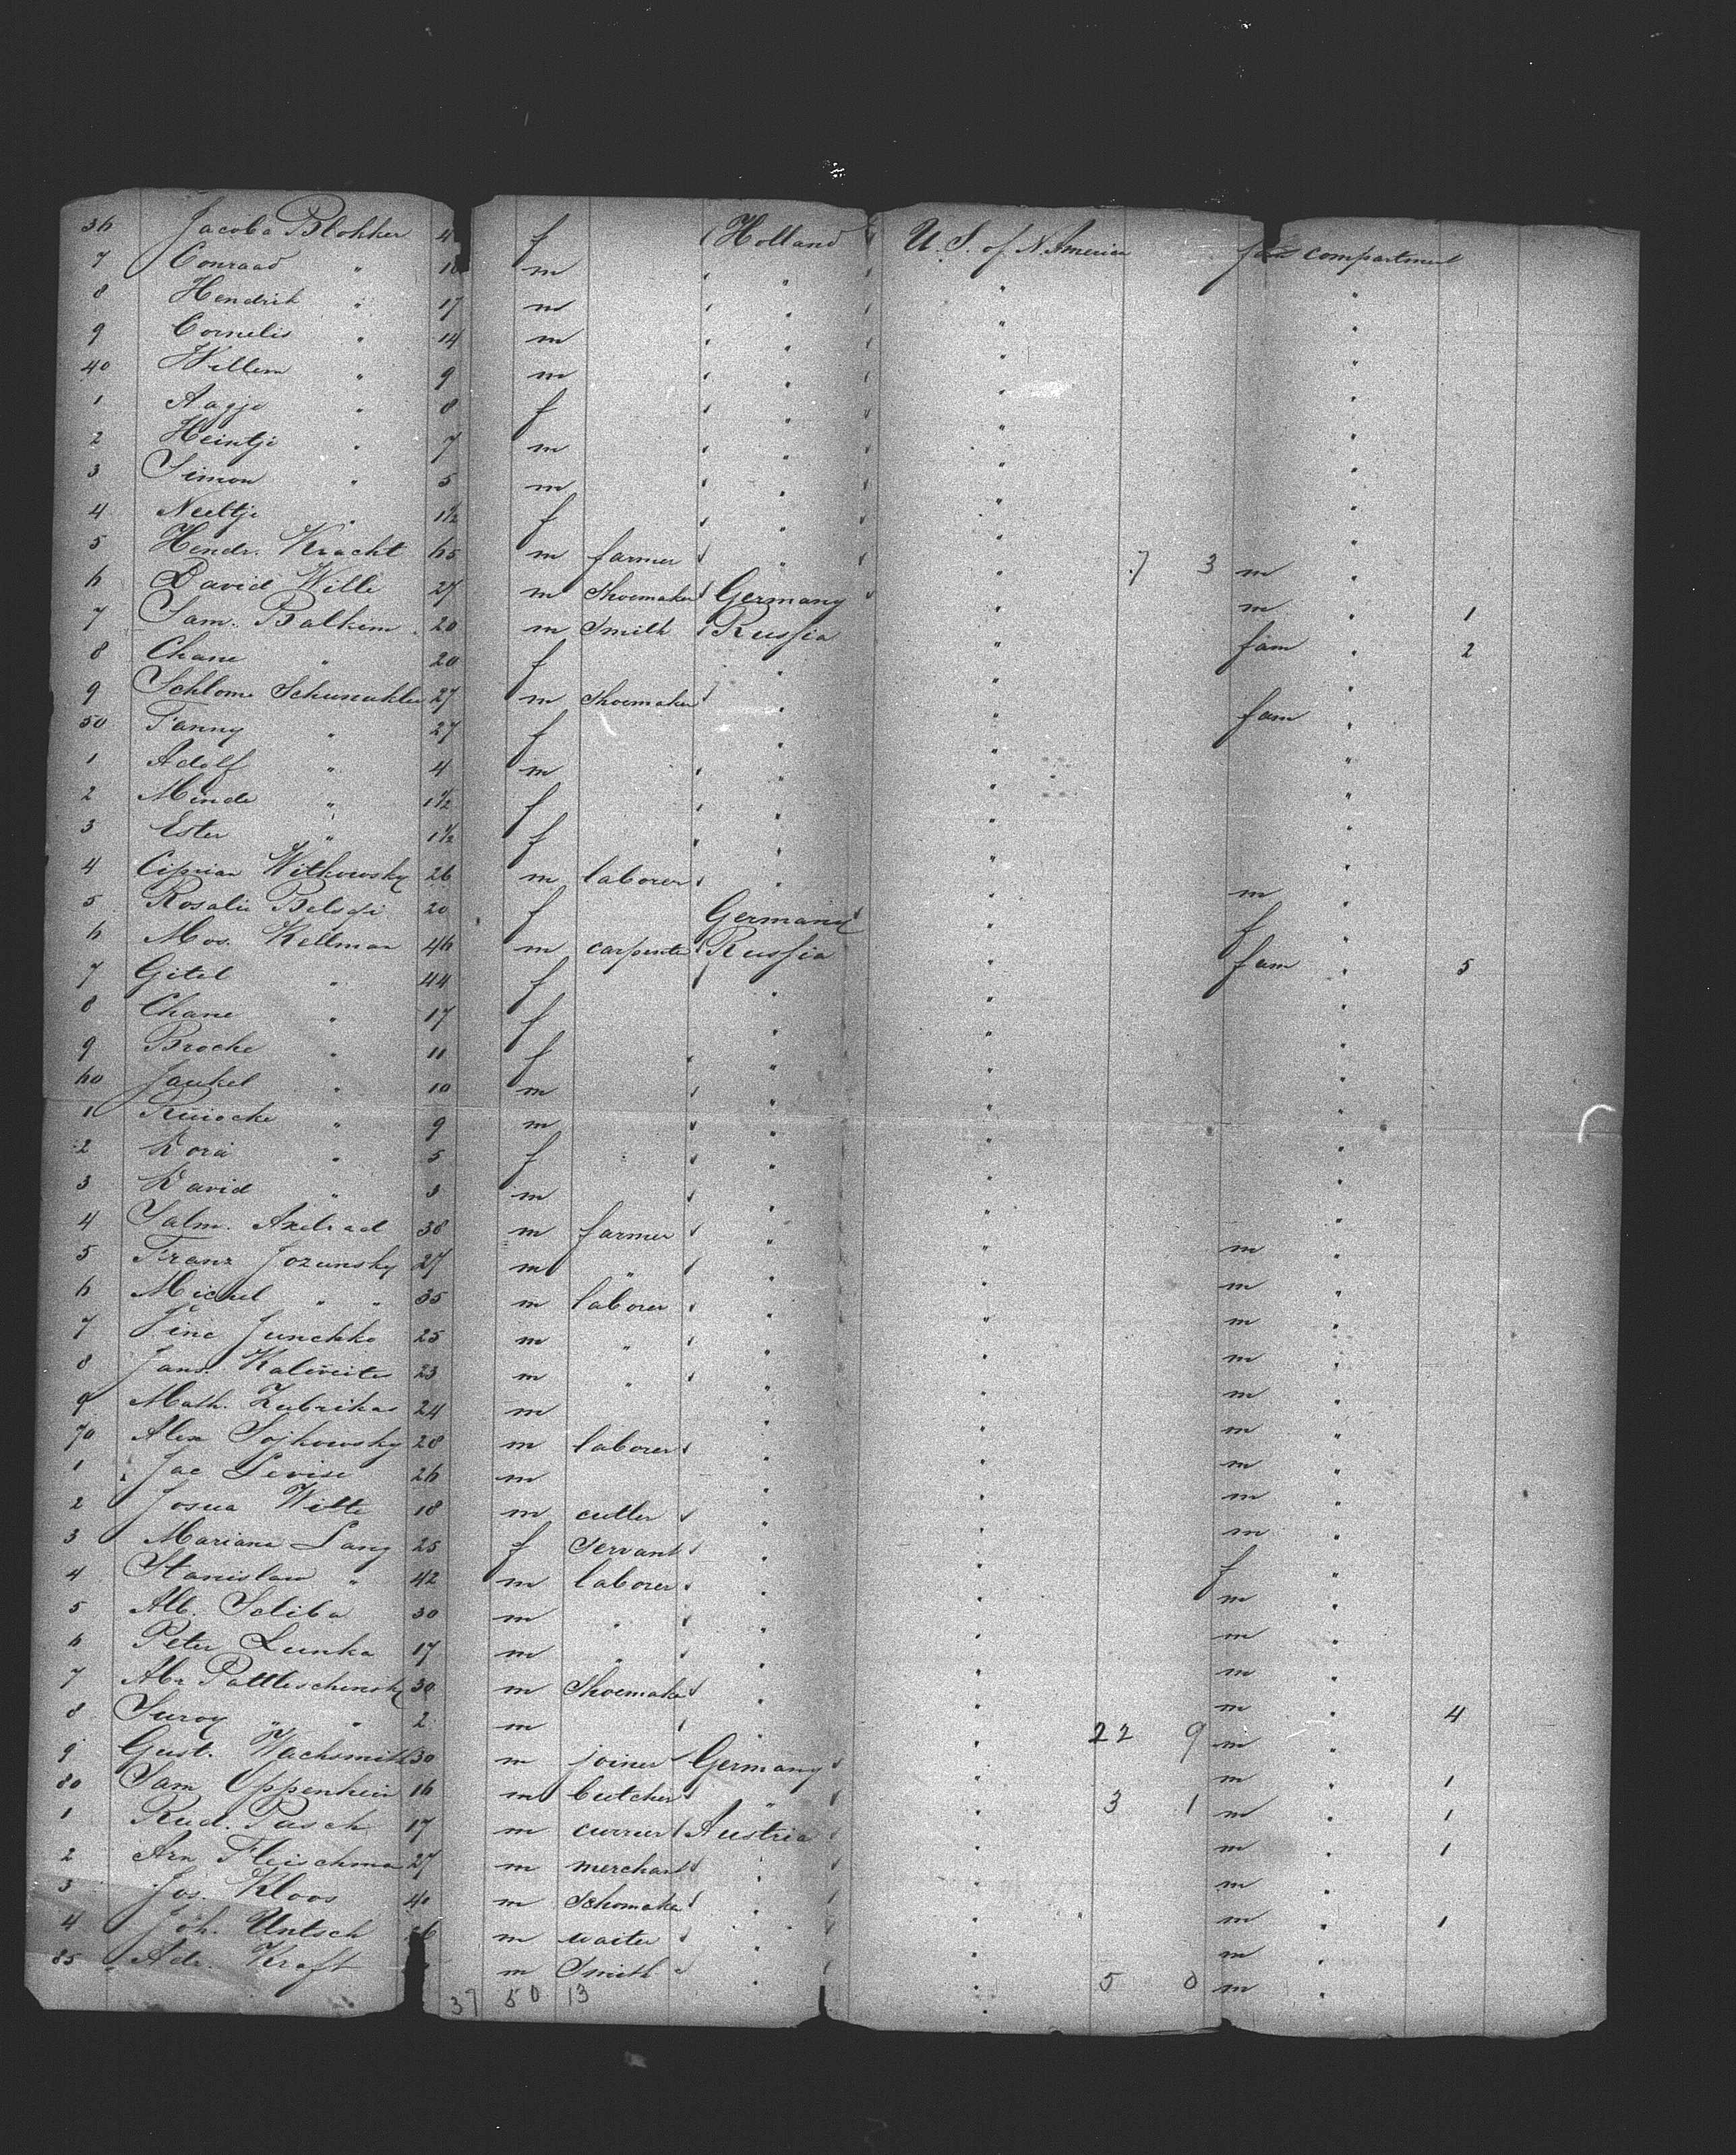 36 Jacoba Blokker 4 f Holland U. S. of N. America fam compartment
7 Conraad " 18 m " " "
8 Hendrik " 17 m " " "
9 Cornelis " 14 m " " "
40 Willem " 9 m " " "
1 Aagje " 8 f " " "
2 Heintje " 7 m " " "
3 Simon " 5 m " " "
4 Neeltje " 1 1/2 f " " "
5 Hendr. Kracht 65 m farmer " " 7 3 m "
6 David Wille 27 m Shoemaker Germany " m " 1
7 Sam. Balkem 20 m Smith Russia " fam " 2
8 Chane " 20 f " " "
9 Schlome 27 m Shoemaker " " fam "
50 Fanny " 27 f " " "
1 Adolf " 4 m " " "
2 Minde " 1 1/2 f " " "
3 Ester " 1 1/2 f " " "
4 Ciprian Witkowsky 26 m laborer " " m "
5 Rosalie 20 f Germany " f "
6 Mos. Kellman 46 m carpenter Russia " fam " 5
7 Gitel " 44 f " " "
8 Chane " 17 f " " "
9 Broche " 11 f " " "
60 Jankel " 10 m " " "
1 " 9 m " " "
2 " 5 f " " "
3 David " 3 m " " "
4 Salm. Axelrad 38 m farmer " " m "
5 Franz Jozunsky 27 m " " " m "
6 Michel " " 35 m laborer " " m "
7 Junchko 25 m " " " m "
8 Jans. 23 m " " " m "
9 Math. Zubrikas 24 m " " m "
70 Alex Sojkowsky 28 m laborer " " m "
1 Jac Levise 26 m " " m "
2 Josua Witte 18 m cutler " " m "
3 Mariane Lang 25 f Servant " " f "
4 Stanislaw " 42 m laborer " " m "
5 Alb. Seliba 30 m " " " m "
6 Peter Lunka 17 m " " " m "
7 Abr Pattleschinsky 30 m Shoemaker " " m " 4
8 Suroy " " 2 m " " 22 9 m "
9 Gust. Wachsmith 30 m joiner Germany " m " 1
80 Sam Oppenheim 16 m butcher " " 3 1 m " 1
1 Rud. Pasch 17 m currier Austria " m " 1
2 Arn Fleischman 27 m merchant " " m "
3 Jos. Kloos 40 m Schomaker " " m " 1
4 Joh. Untsch 26 m waiter " " m "
85 Adr. Kraft m Smith " " 5 0 m "
37 50 13